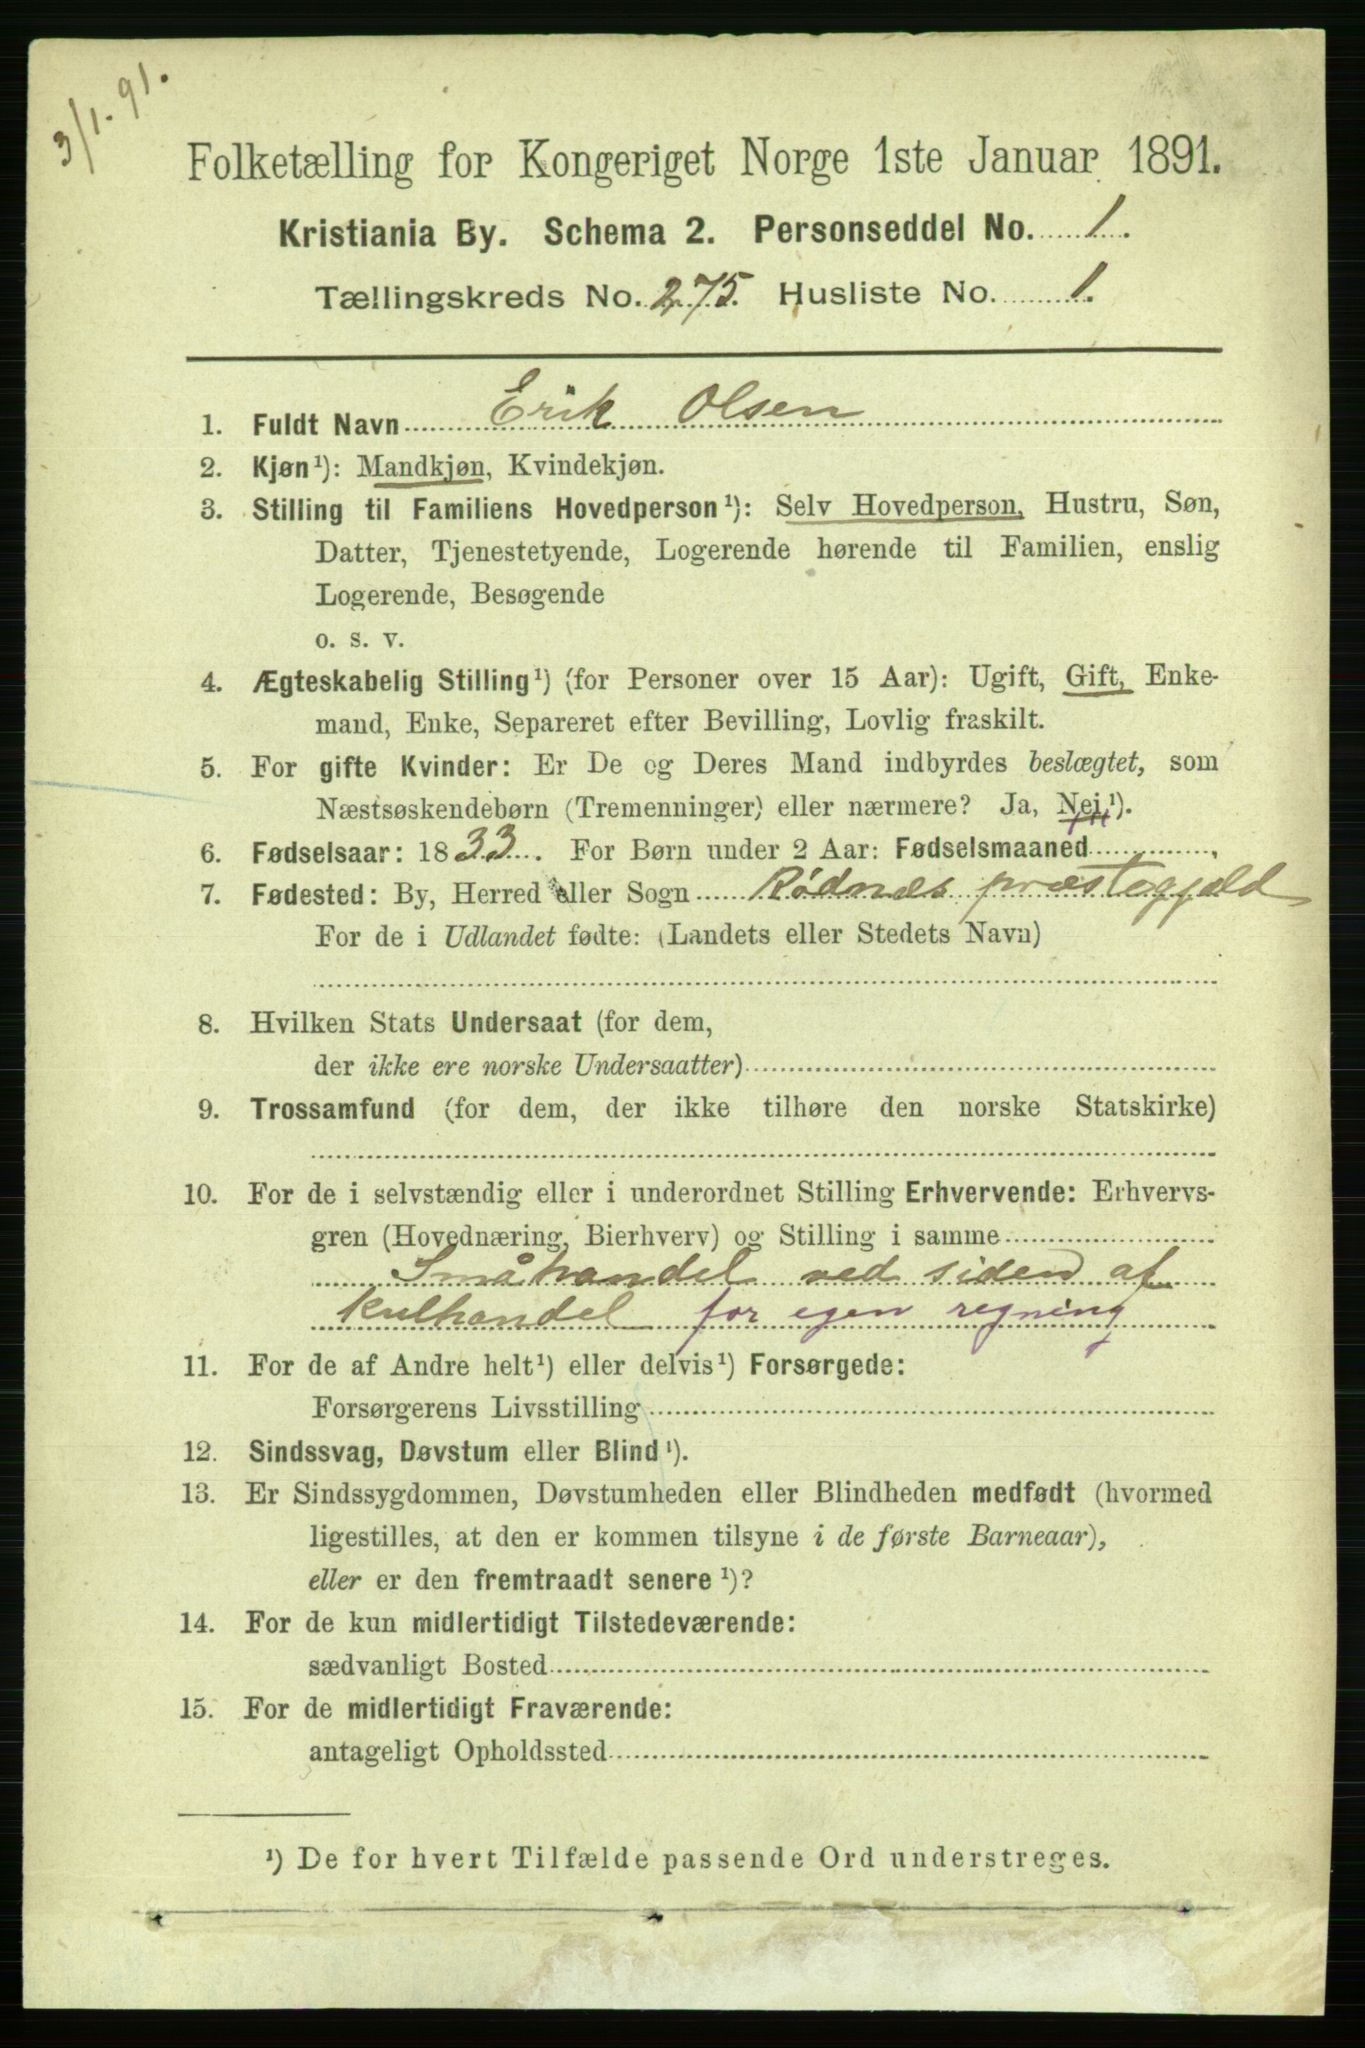 3/1. 91.
Folketælling for Kongeriget Norge 1ste Januar 1891.
Kristiania By. Schema 2. Personseddel No. 1.
Tællingskreds No. 275. Husliste No. 1.
1. Fuldt Navn Erik Olsen
2. Kjøn¹): Mandkjøn, Kvindekjøn.
3. Stilling til Familiens Hovedperson¹): Selv Hovedperson, Hustru, Søn,
Datter, Tjenestetyende, Logerende hørende til Familien, enslig
Logerende, Besøgende
o. s. v.
4. Ægteskabelig Stilling¹) (for Personer over 15 Aar): Ugift, Gift, Enke-
mand, Enke, Separeret efter Bevilling, Lovlig fraskilt.
5. For gifte Kvinder: Er De og Deres Mand indbyrdes beslægtet, som
Næstsøskendebørn (Tremenninger) eller nærmere? Ja, Nei¹).
6. Fødselsaar: 1833. For Børn under 2 Aar: Fødselsmaaned
7. Fødested: By, Herred eller Sogn Rödnæs præstegjæld
For de i Udlandet fødte: (Landets eller Stedets Navn)
8. Hvilken Stats Undersaat (for dem,
der ikke ere norske Undersaatter)
9. Trossamfund (for dem, der ikke tilhøre den norske Statskirke)
10. For de i selvstændig eller i underordnet Stilling Erhvervende: Erhvervs-
gren (Hovednæring, Bierhverv) og Stilling i samme
Småhandel ved siden af
kulhandel for egen regning
11. For de af Andre helt¹) eller delvis¹) Forsørgede:
Forsørgerens Livsstilling
12. Sindssvag, Døvstum eller Blind¹).
13. Er Sindssygdommen, Døvstumheden eller Blindheden medfødt (hvormed
ligestilles, at den er kommen tilsyne i de første Barneaar),
eller er den fremtraadt senere¹)?
14. For de kun midlertidigt Tilstedeværende:
sædvanligt Bosted
15. For de midlertidigt Fraværende:
antageligt Opholdssted
¹) De for hvert Tilfælde passende Ord understreges.